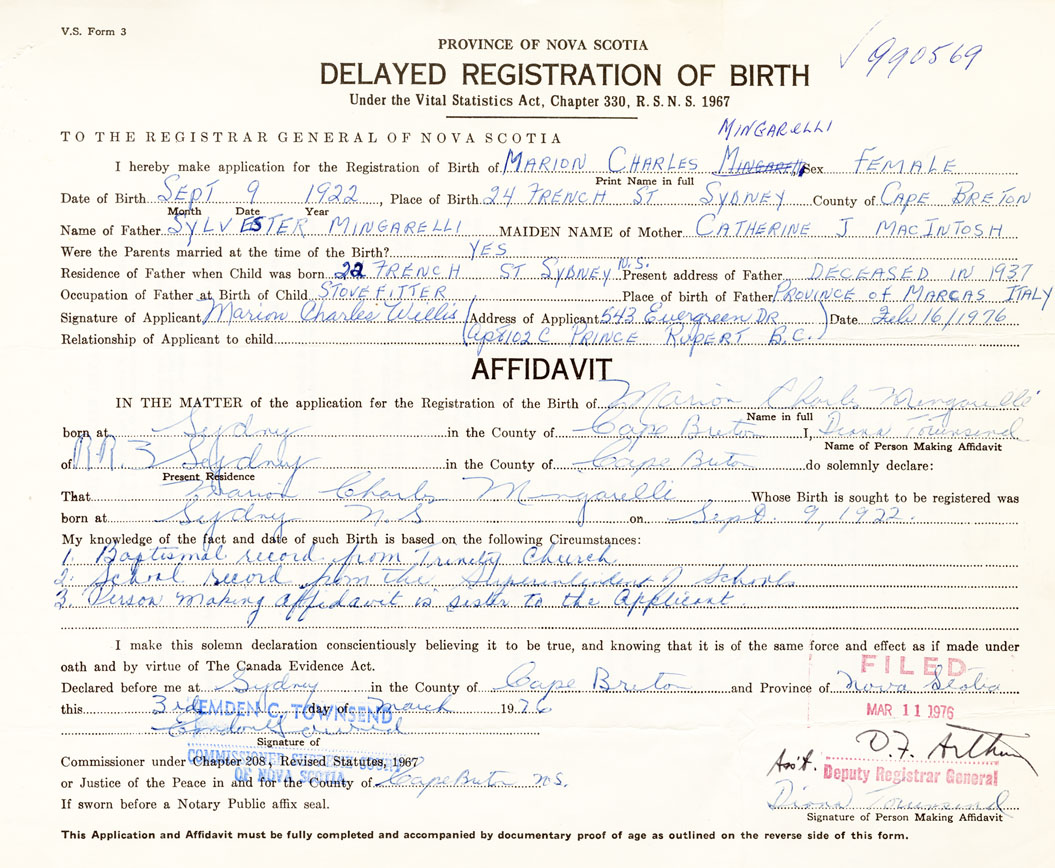 V.S. Form 3
PROVINCE OF NOVA SCOTIA
√990569
DELAYED REGISTRATION OF BIRTH
Under the Vital Statistics Act, Chapter 330, R. S. N. S. 1967
TO THE REGISTRAR GENERAL OF NOVA SCOTIA
MINGARELLI
I hereby make application for the Registration of Birth of MARION CHARLES MINGARELLI Sex FEMALE
Print Name in full
Date of Birth SEPT 9 1922, Place of Birth 24 FRENCH ST SYDNEY County of CAPE BRETON
Month Date Year
Name of Father SYLVESTER MINGARELLI MAIDEN NAME of Mother CATHERINE J MACINTOSH
Were the Parents married at the time of the Birth? YES
Residence of Father when Child was born 22 FRENCH ST SYDNEY N.S. Present address of Father DECEASED IN 1937
Occupation of Father at Birth of Child STOVE FITTER Place of birth of Father PROVINCE OF MARCAS ITALY
Signature of Applicant Marion Charles Willis (Address of Applicant 543 Evergreen DR) Date Feb 16/1976
Relationship of Applicant to child (apt 102 C PRINCE RUPERT B.C.)
AFFIDAVIT
IN THE MATTER of the application for the Registration of the Birth of Marion Charles Mingarelli
Name in full
born at Sydney in the County of Cape Breton I, Diana Townsend
Name of Person Making Affidavit
of RR. 3 Sydney in the County of Cape Breton do solemnly declare:
Present Residence
That Marion Charles Mingarelli Whose Birth is sought to be registered was
born at Sydney N.S on Sept. 9, 1922.
My knowledge of the fact and date of such Birth is based on the following Circumstances:
1. Baptismal record from Trinity Church
2. School record from the Superintendent of Schools
3. Person making affidavit is sister to the Applicant.
I make this solemn declaration conscientiously believing it to be true, and knowing that it is of the same force and effect as if made under
oath and by virtue of The Canada Evidence Act.
FILED
Declared before me at Sydney in the County of Cape Breton and Province of Nova Scotia
this 3rd day of March 1976
EMDEN C. TOWNSEND
MAR 11 1976
Signature of
Commissioner under Chapter 208, Revised Statutes, 1967
COMMISSIONER SUPREME COURT
OF NOVA SCOTIA
or Justice of the Peace in and for the County of Cape Breton N.S.
D. F. Arthur
Ass't. Deputy Registrar General
If sworn before a Notary Public affix seal.
Diana Townsend
Signature of Person Making Affidavit
This Application and Affidavit must be fully completed and accompanied by documentary proof of age as outlined on the reverse side of this form.